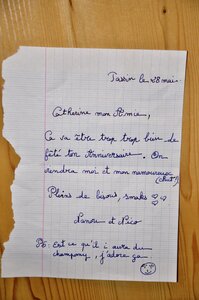 Passin le 28 mai.
Catherine mon Amie,
Ca va être trop trop bien de
fêté ton Anniversaire. On
viendra moi et mon namoureux
(chut!)
Pleins de bisous, smaks ♡♡
Nanou et Nico
PS: Est ce qu'il i aura du
champomy, j'adore ça